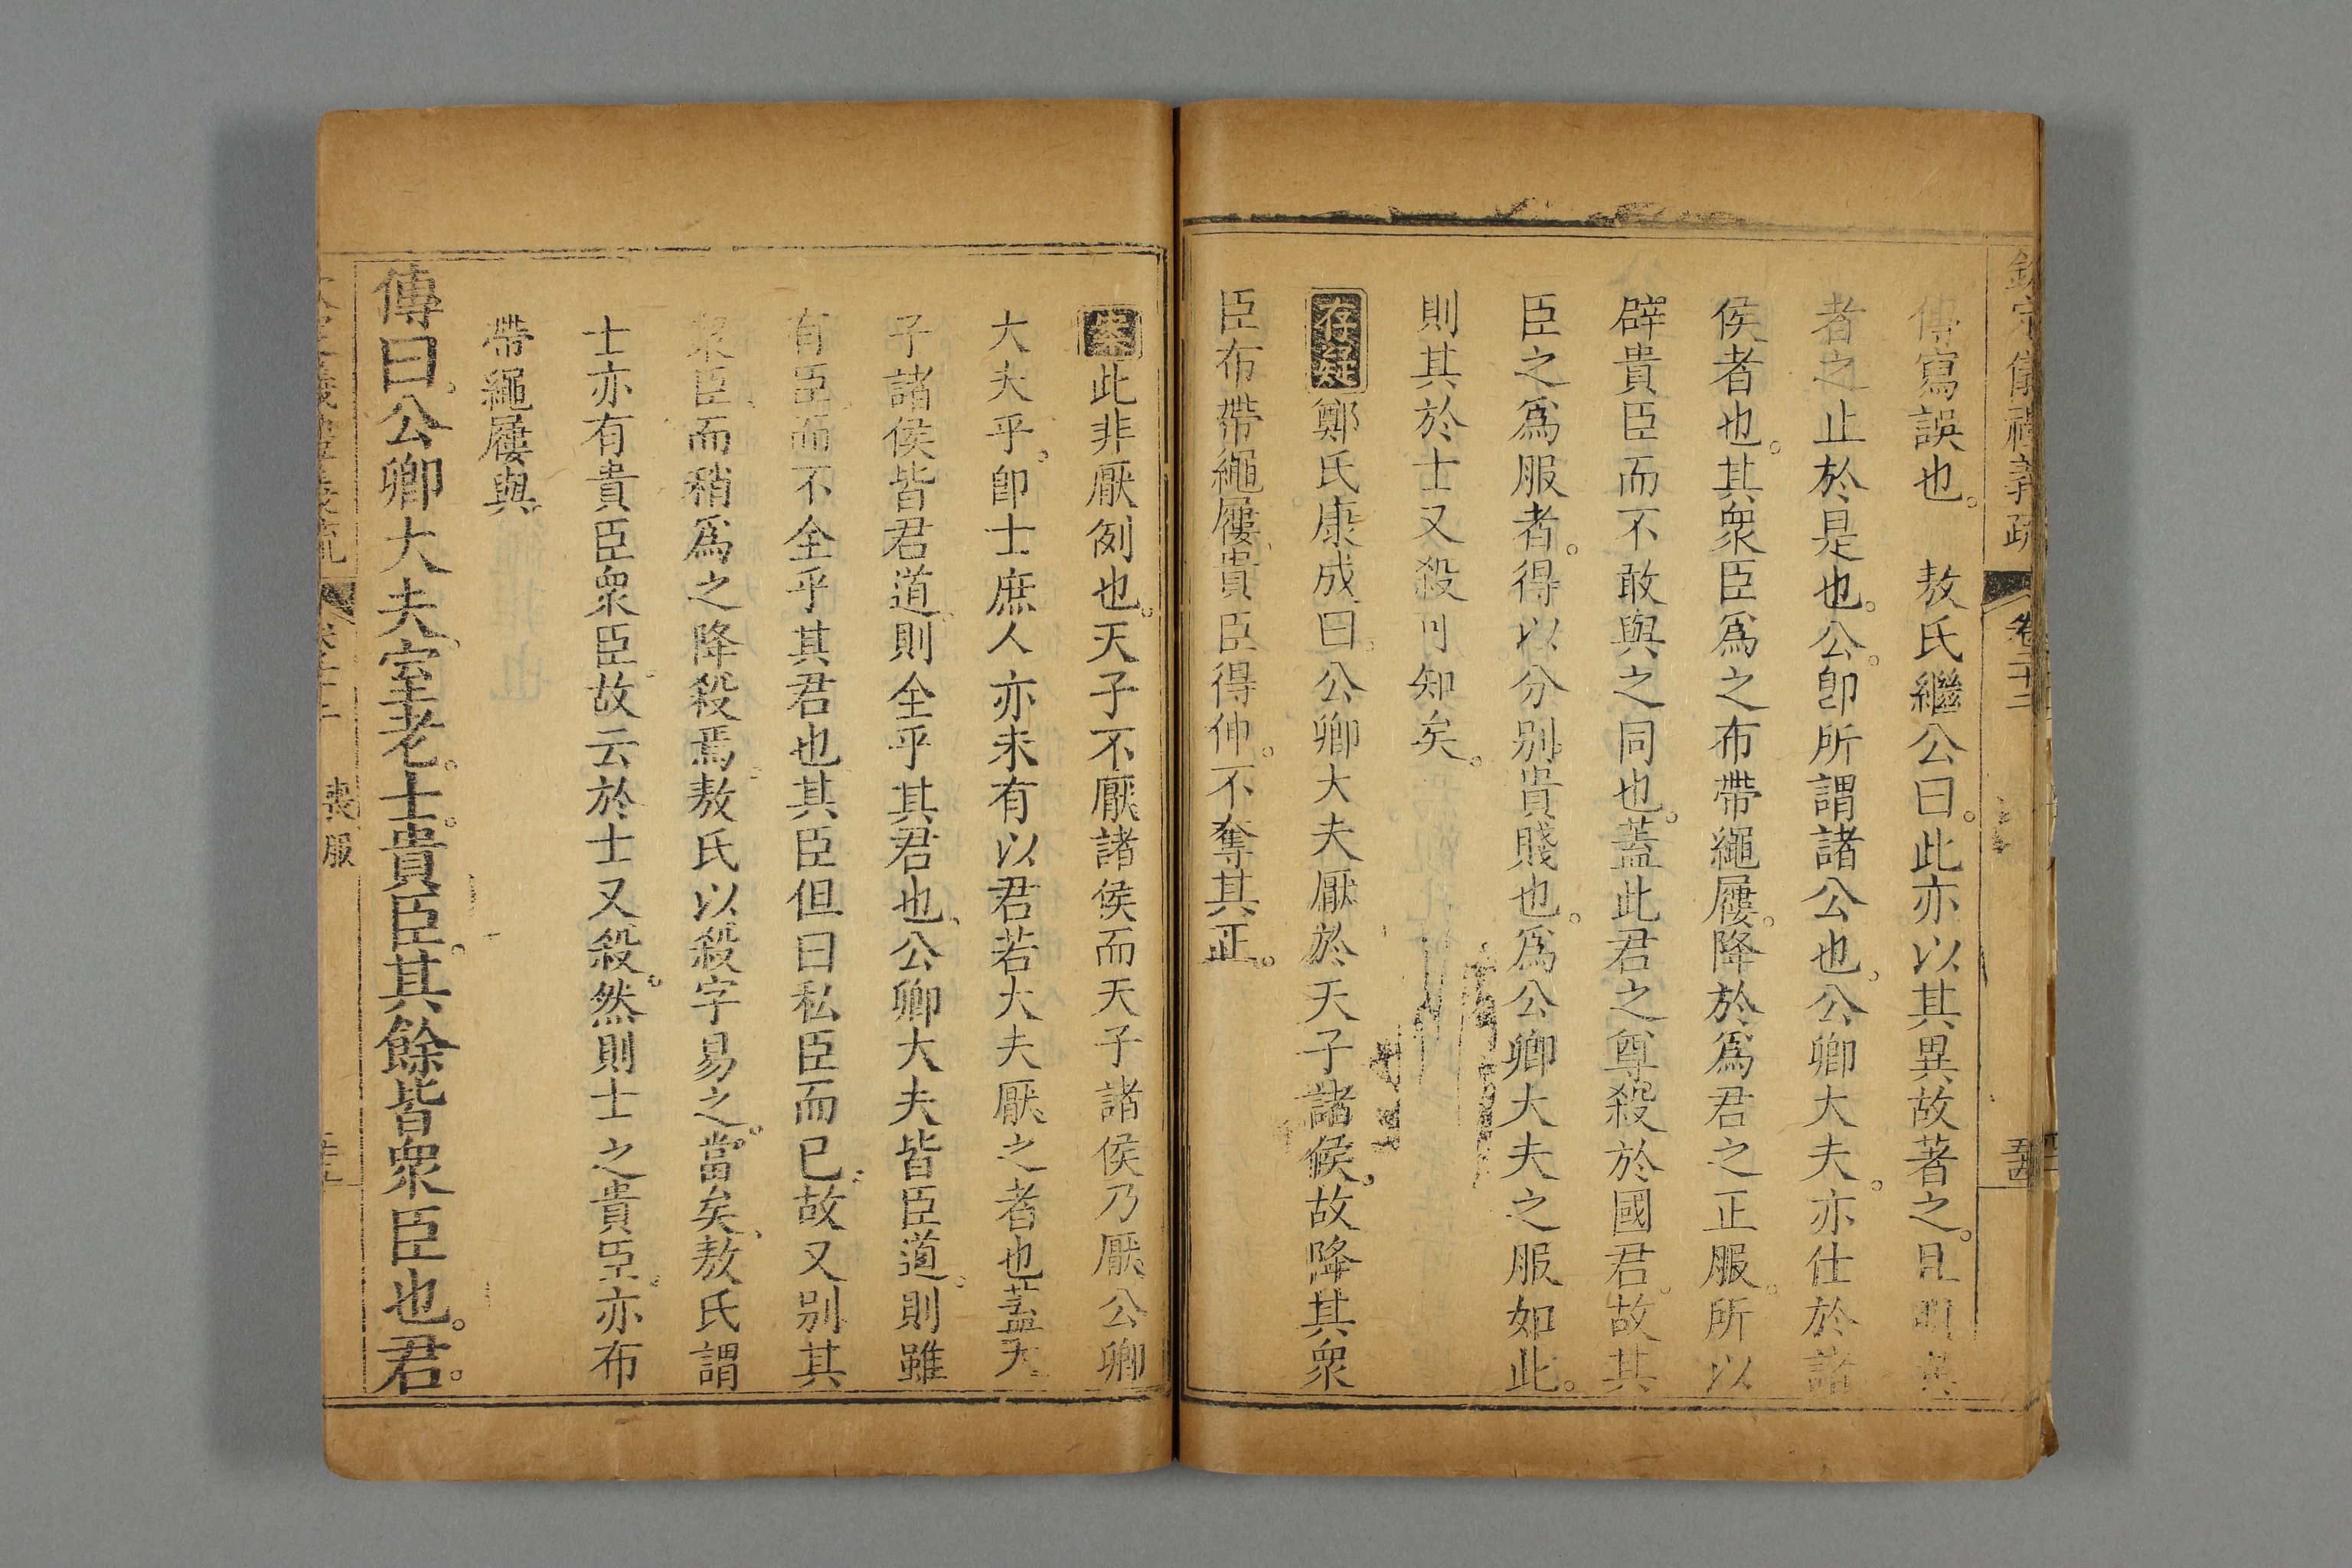 欽定儀禮義疏 卷二十二
傳寫誤也。 敖氏繼公曰。此亦以其異故著之。且明異
者之止於是也。公。卽所謂諸公也。公卿大夫。亦仕於諸
侯者也。其衆臣爲之布帶繩屨。降於爲君之正服。所以
辟貴臣而不敢與之同也。蓋此君之尊殺於國君。故其
臣之爲服者。得以分別貴賤也。爲公卿大夫之服如此。
則其於士又殺可知矣。
存疑鄭氏康成曰。公卿大夫厭於天子諸侯。故降其衆
臣布帶繩屨。貴臣得伸。不奪其正。
案此非厭例也。天子不厭諸侯而天子諸侯乃厭公卿
大夫乎。卽士庶人亦未有以君若大夫厭之者也蓋天
子諸侯皆君道。則全乎其君也。公卿大夫皆臣道。則雖
有臣而不全乎其君也其臣但曰私臣而已。故又別其
衆臣而稍爲之降殺焉。敖氏以殺字易之。當矣。敖氏謂
士亦有貴臣衆臣。故云於士又殺。然則士之貴臣。亦布
帶繩屨與
傳曰。公卿大夫。室老。士。貴臣。其餘皆衆臣也。君。
喪服